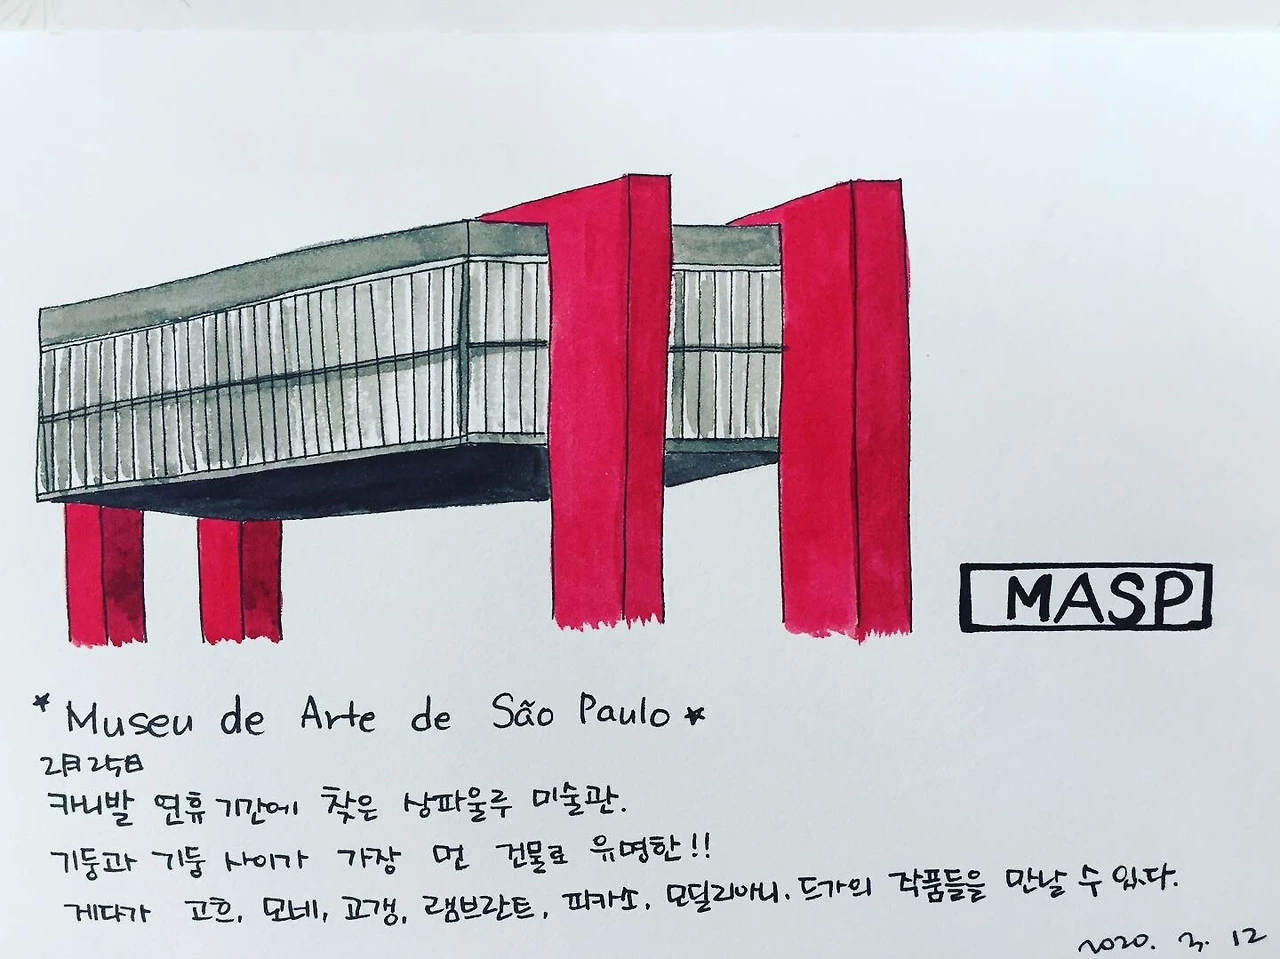 MASP
* Museu de Arte de São Paulo *
2月 25日
카니발 연휴 기간에 찾은 상파울루 미술관.
기둥과 기둥 사이가 가장 먼 건물로 유명한!!
게다가 고흐, 모네, 고갱, 램브란트, 피카소, 모딜리아니. 드가의 작품들을 만날 수 있다.
2020. 3. 12